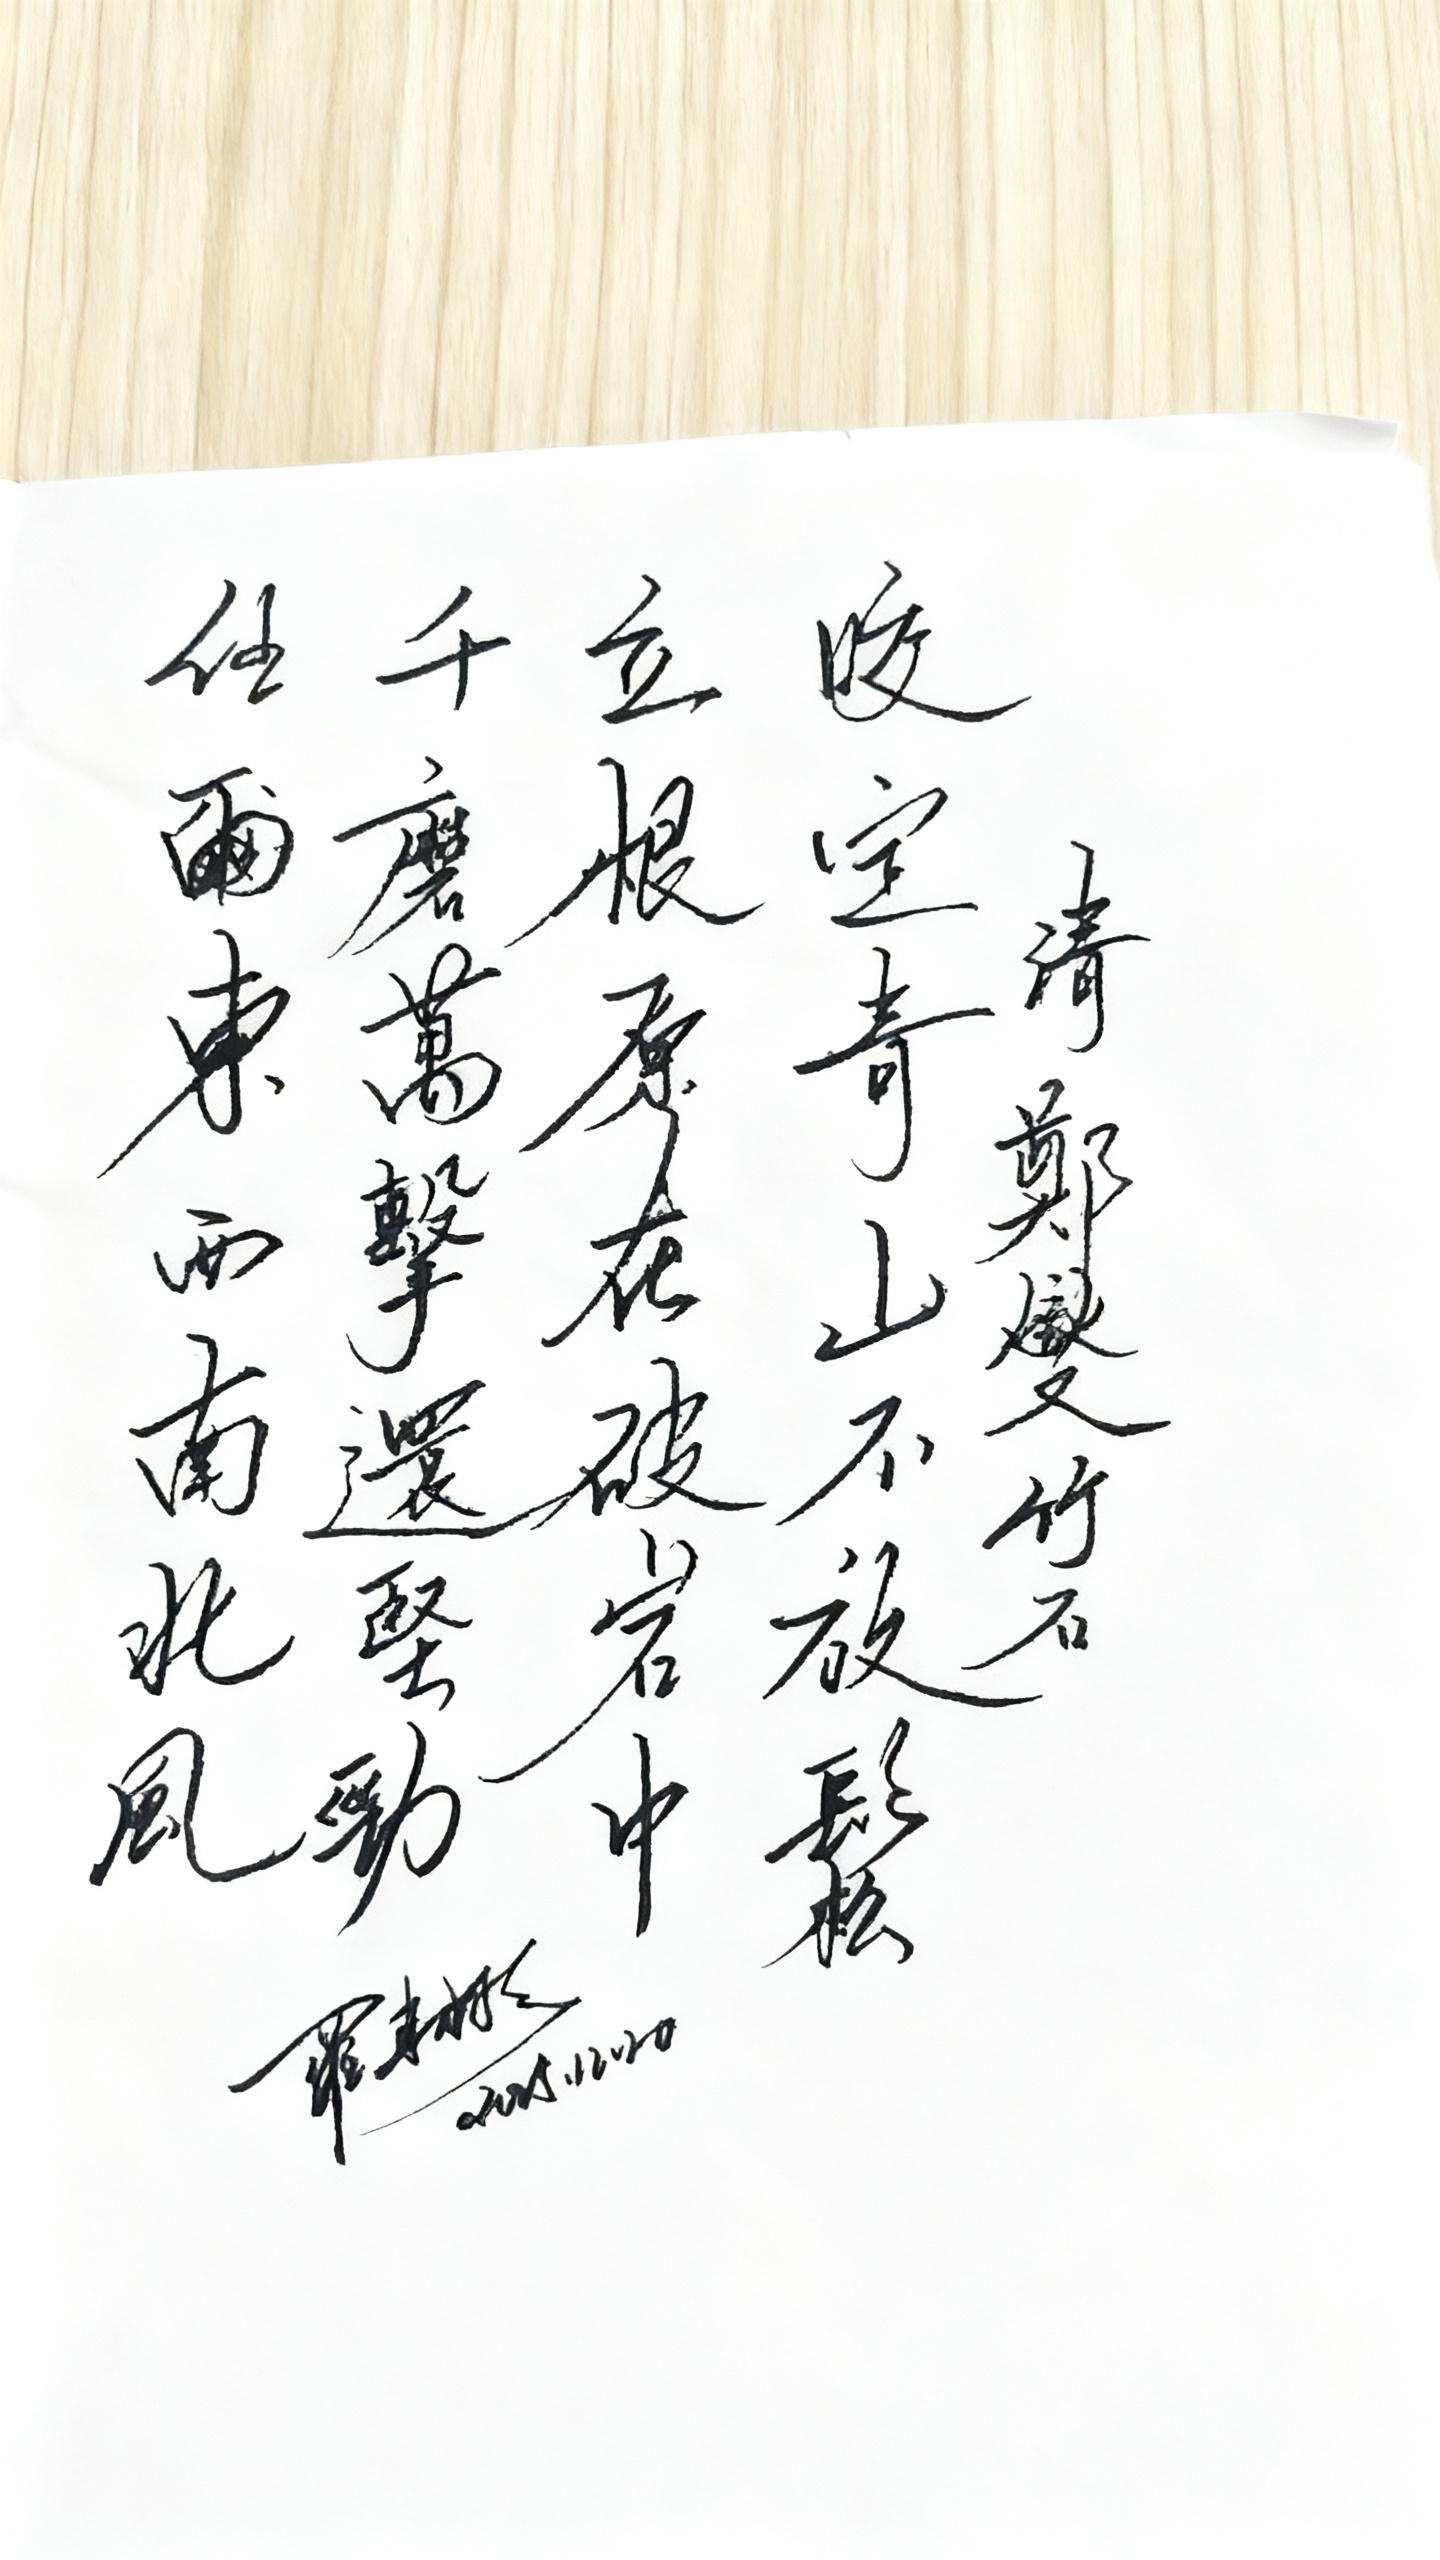 清鄭燮竹石
咬定青山不放鬆
立根原在破岩中
千磨萬擊還堅勁
任爾東西南北風
羅
2025.12.20